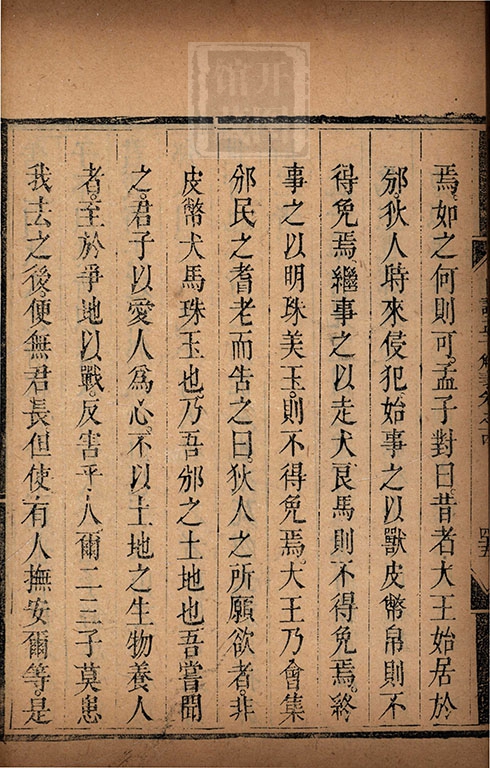 焉。如之何則可。孟子對曰昔者大王始居於
邠。狄人時來侵犯。始事之以獸皮幣帛則不
得免焉繼事之以走犬良馬則不得免焉。終
事之以明珠美玉。則不得免焉。大王乃會集
邠民之耆老而告之曰狄人之所願欲者。非
皮幣犬馬珠玉也。乃吾邠之土地也吾嘗聞
之。君子以愛人爲心。不以土地之生物養人
者。至於爭地以戰。反害乎人爾二三子莫患
我去之後便無君長但使有人撫安爾等。是